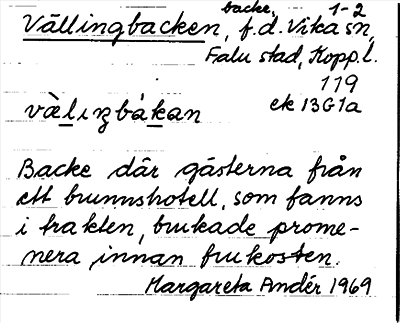 backe, 1-2
Vällingbacken, f.d. Vika sn,
Falu stad, Kopp.l.
119
vὰlιŋbàkan ek 13G1a
Backe där gästerna från
ett brunnshotell, som fanns
i trakten, brukade prome-
nera innan frukosten.
Margareta Andér 1969